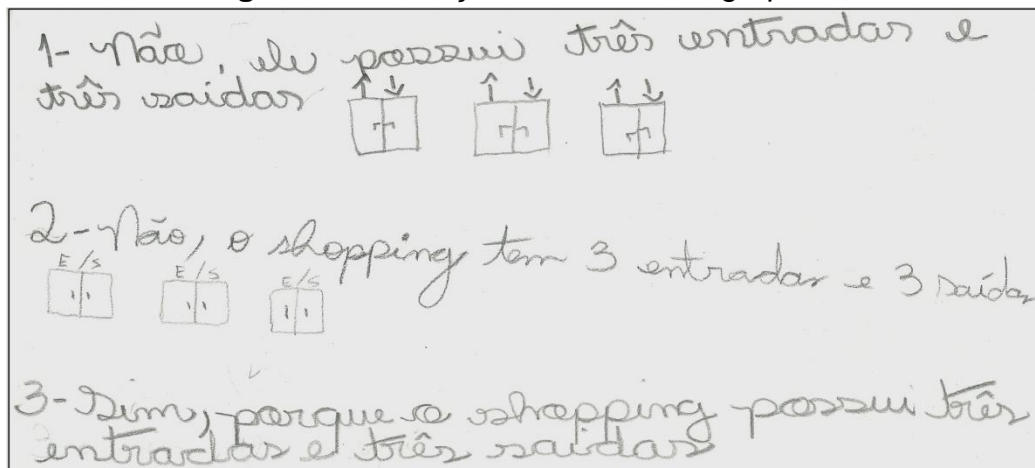 1- Não, ele possui três entradas e
três saidas
2- Não, o shopping tem 3 entradas e 3 saídas
E/S E/S E/S
3- Sim, porque o shopping possui três
entradas e três saidas